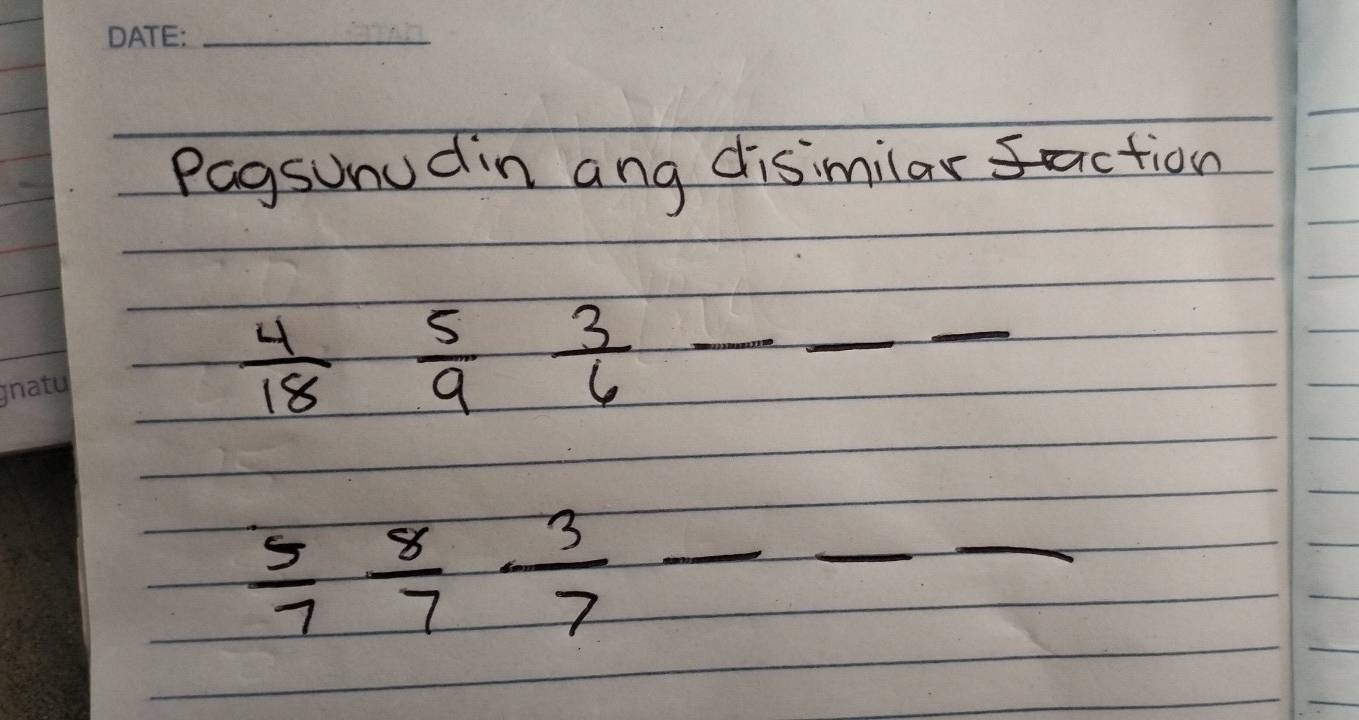 DATE:
Pagsunudin ang disimilar fraction
4/18 5/9 3/6 _ _ _
5/7 8/7 3/7 _ _ _
gnatu